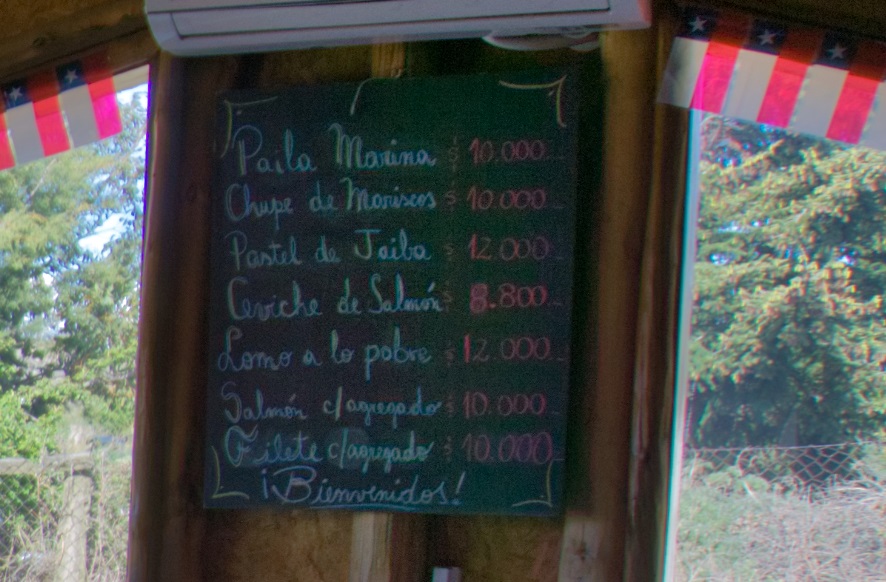 Paila Marina $ 10.000.-
Chupe de Mariscos $ 10.000.-
Pastel de Jaiba $ 12.000.-
Ceviche de Salmón $ 8.800.-
Lomo a lo pobre $ 12.000.-
Salmón c/agregado $ 10.000.-
Filete c/agregado $ 10.000.-
¡Bienvenidos!